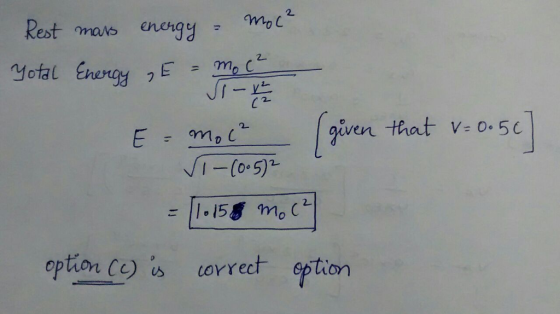 Rest mass energy = m₀c²
Total Energy, E = m₀c² / √(1 - v²/c²)
E = m₀c² / √(1-(0.5)²) [given that v=0.5c]
= 1.15 m₀c²
option (c) is correct option